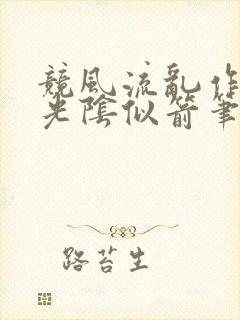 競風流亂作
光陰似箭筆
路苔生